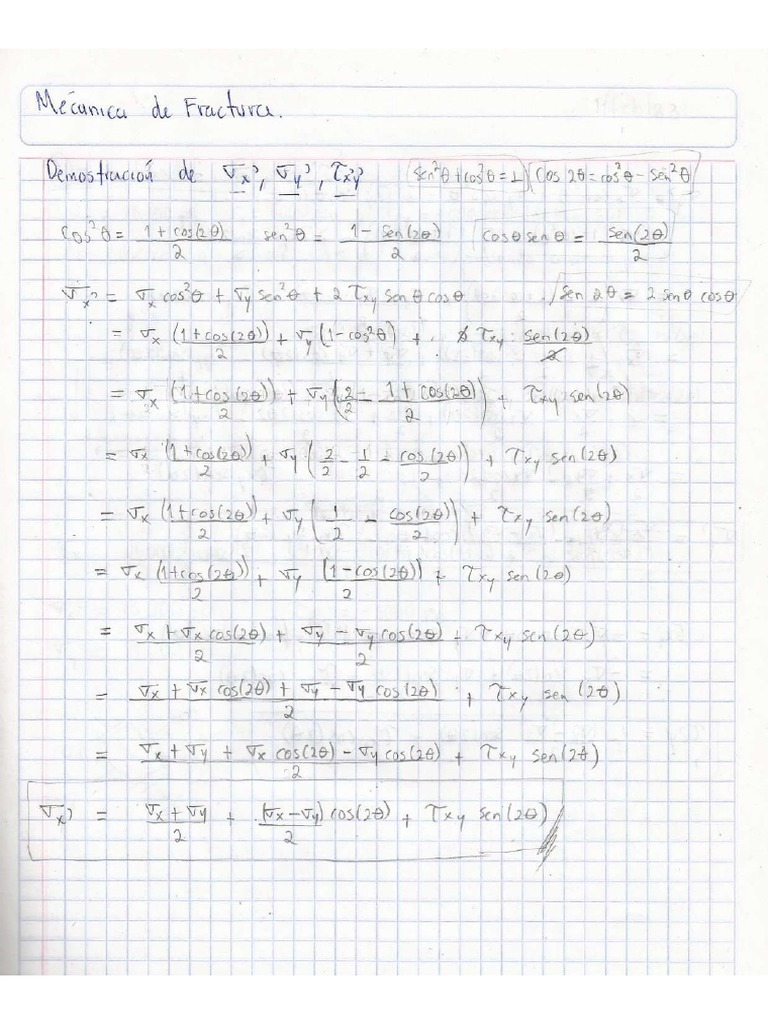 Mecánica de Fractura.
Demostración de σx', σy', τx'y' sen²θ+cos²θ=1 Cos 2θ=cos²θ-sen²θ
Cos²θ = (1+cos(2θ))/2 sen²θ = (1-sen(2θ))/2 cosθ senθ = sen(2θ)/2
σx' = σx cos²θ + σy sen²θ + 2 τxy sen θ cosθ sen 2θ = 2 senθ cosθ
= σx (1+cos(2θ))/2 + σy (1-cos²θ) + 2 τxy · sen(2θ)/2
= σx (1+cos(2θ))/2 + σy (2/2 - (1+cos(2θ))/2) + τxy sen(2θ)
= σx (1+cos(2θ))/2 + σy (2/2 - 1/2 - cos(2θ)/2) + τxy sen(2θ)
= σx (1+cos(2θ))/2 + σy (1/2 - cos(2θ)/2) + τxy sen(2θ)
= σx (1+cos(2θ))/2 + σy (1-cos(2θ))/2 + τxy sen(2θ)
= (σx + σx cos(2θ))/2 + (σy - σy cos(2θ))/2 + τxy sen(2θ)
= (σx + σx cos(2θ) + σy - σy cos(2θ))/2 + τxy sen(2θ)
= (σx + σy + σx cos(2θ) - σy cos(2θ))/2 + τxy sen(2θ)
σx' = (σx + σy)/2 + (σx-σy)/2 cos(2θ) + τxy sen(2θ)